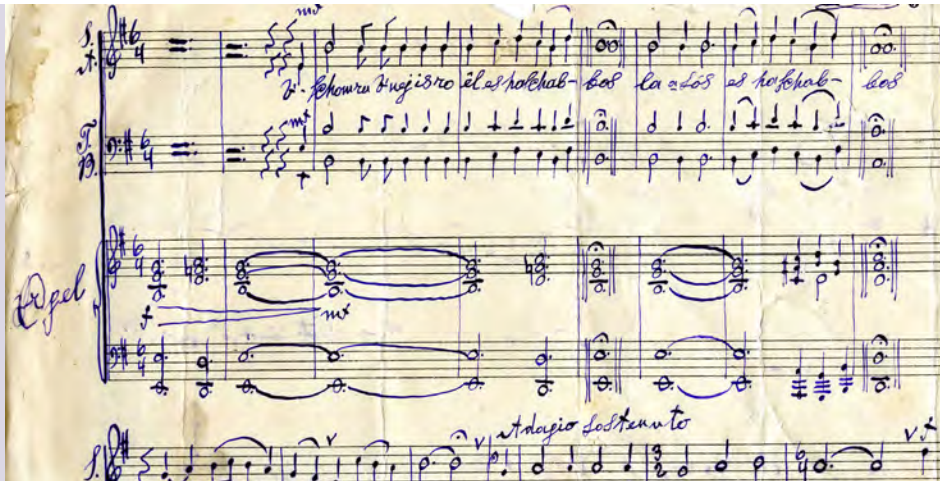 mf
S.
A.
6
4
V'-schomru v'nej isro êl es haschab- bos la a sós es haschab- bos
mf
T.
B.
6
4
f
Orgel
6
4
f mf
6
4
Adagio sostenuto
S.
3
2
6
4
f